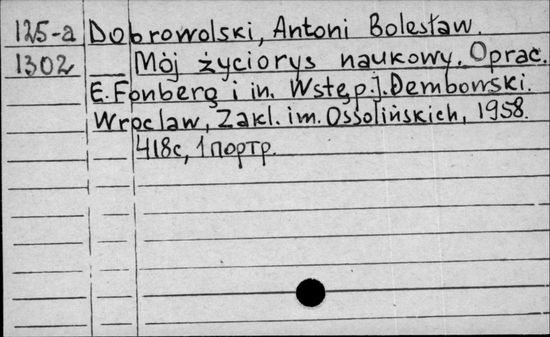 125-a Dobrowolski, Antoni Bolesław.
1302 Mój życiorys naukowy. Oprac.
E. Fonberg i in. Wstęp: J. Dembowski.
Wrocław, Zakl. im. Ossolińskich, 1958.
418c, 1 портр.